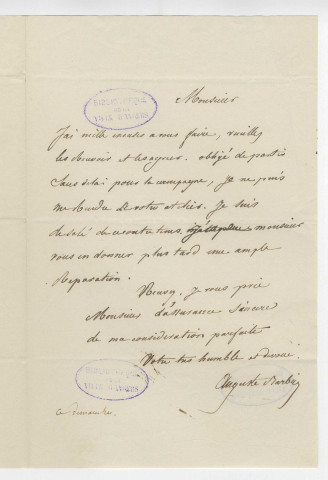 Monsieur
BIBLIOTHÈQUE
DE LA
VILLE D'ANGERS
J'ai mille excuses a vous faire, veuillez
les recevoir et les agréer. obligé de partir
sans délai pour la campagne, je ne puis
me rendre à votre atelier. Je suis
désolé de ce contretems, monsieur
vous en donner plus tard une ample
Réparation.
Recevez je vous prie
Monsieur l'assurance sincère
de ma considération parfaite
Votre très humble et dévoué.
BIBLIOTHÈQUE
VILLE D'ANGERS
Auguste Barbier
ce dimanche.